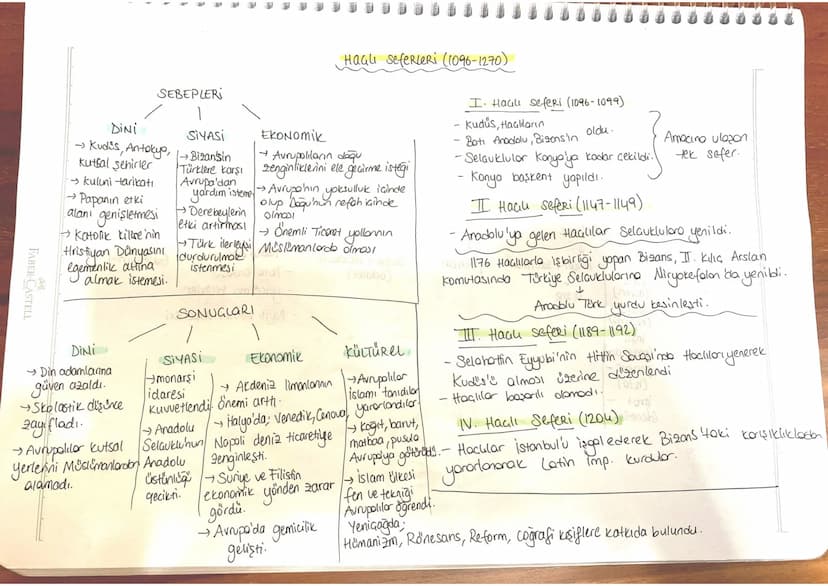 HAÇLI SEFERLERİ (1096-1270)
SEBEPLERİ
DİNİ
→ Kudüs, Antakya,
kutsal şehirler
→ kuluni tarikatı
→ Papanın etki
alanı genişletmesi
→ Katolik kilise'nin
Hristiyan Dünyasını
egemenlik altına
almak istemesi.
SİYASİ
→ Bizans'ın
Türklere karşı
Avrupa'dan
yardım isteme
→ Derebeylerin
etki artırması
→ Türk ilerleyişi
durdurulmak
istenmesi
EKONOMİK
→ Avrupalıların doğu
zenginliklerini ele geçirme isteği
→ Avrupa'nın yoksulluk içinde
olup Doğu'nun refah içinde
olması
→ Önemli Ticaret yollarının
Müslümanlarda olması
SONUÇLARI
DİNİ
→ Din adamlarına
güven azaldı.
→ Skolastik düşünce
zayıfladı.
→ Avrupalılar kutsal
yerlerini Müslümanlardan
alamadı.
SİYASİ
→ monarşi
idaresi
kuvvetlendi
→ Anadolu
Selçuklu'nun
Anadolu
üstünlüğü
gecikti.
Ekonomik
→ Akdeniz limanlarının
önemi arttı.
→ İtalya'da; Venedik, Cenova,
Napoli deniz ticaretiyle
zenginleşti.
→ Suriye ve Filistin
ekonomik yönden zarar
gördü.
→ Avrupa'da gemicilik
gelişti.
KÜLTÜREL
→ Avrupalılar
İslamı tanıdılar
yararlandılar
→ kağıt, barut,
matbaa, pusula
Avrupaya götürüldü.
→ İslam ülkesi
fen ve tekniği
Avrupalılar öğrendi.
Yeniçağda;
Hümanizm, Rönesans, Reform, Coğrafi keşiflere katkıda bulundu.
I. Haçlı Seferi (1096-1099)
- Kudüs, Haçlıların
- Batı Anadolu, Bizans'ın oldu.
- Selçuklular Konya'ya kadar çekildi.
- Konya başkent yapıldı.
Amacına ulaşan
tek sefer.
II Haçlı Seferi (1147-1149)
- Anadolu'ya gelen Haçlılar Selçuklulara yenildi.
1176 Haçlılarla işbirliği yapan Bizans, II. Kılıç Arslan
komutasında Türkiye Selçuklularına Miryokefalon'da yenildi.
↓
Anadolu Türk yurdu kesinleşti.
III. Haçlı Seferi (1189-1192)
- Selahattin Eyyubi'nin Hittin Savaşı'nda Haçlıları yenerek
Kudüs'ü alması üzerine düzenlendi
- Haçlılar başarılı olamadı.
IV. Haçlı Seferi (1204)
- Haçlılar İstanbul'u işgal ederek Bizans'taki karışıklıklardan
yararlanarak Latin İmp. kurdular.
FABER-CASTELL